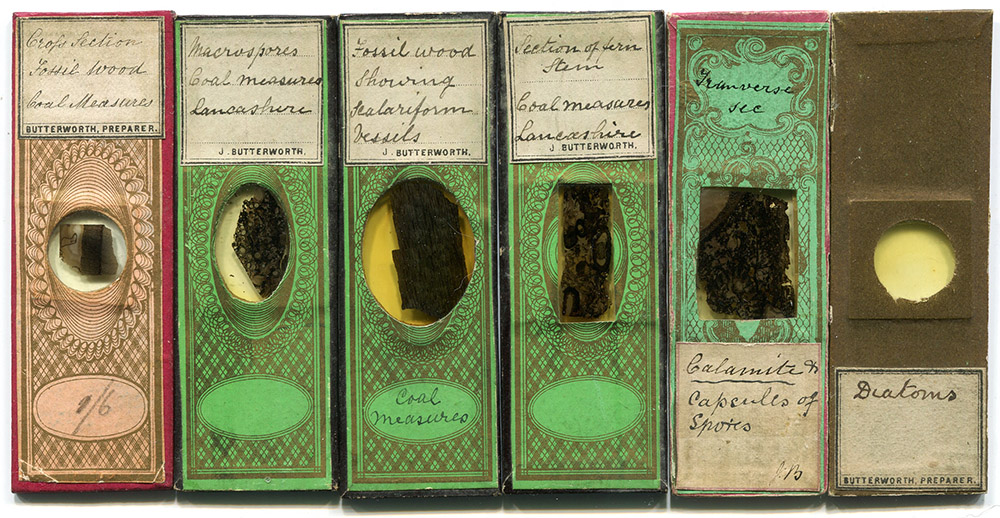 Cross Section
Fossil Wood
Coal Measures
BUTTERWORTH, PREPARER.
1/6
Macrospores
Coal measures
Lancashire
J. BUTTERWORTH.
Fossil wood
Showing
Scalariform
Vessils
J. BUTTERWORTH.
Coal
Measures
Section of fern
Stem
Coal measures
Lancashire
J. BUTTERWORTH.
Tranverse
sec
Calamite &
Capsules of
Spores
J.B
Diatoms
BUTTERWORTH, PREPARER.